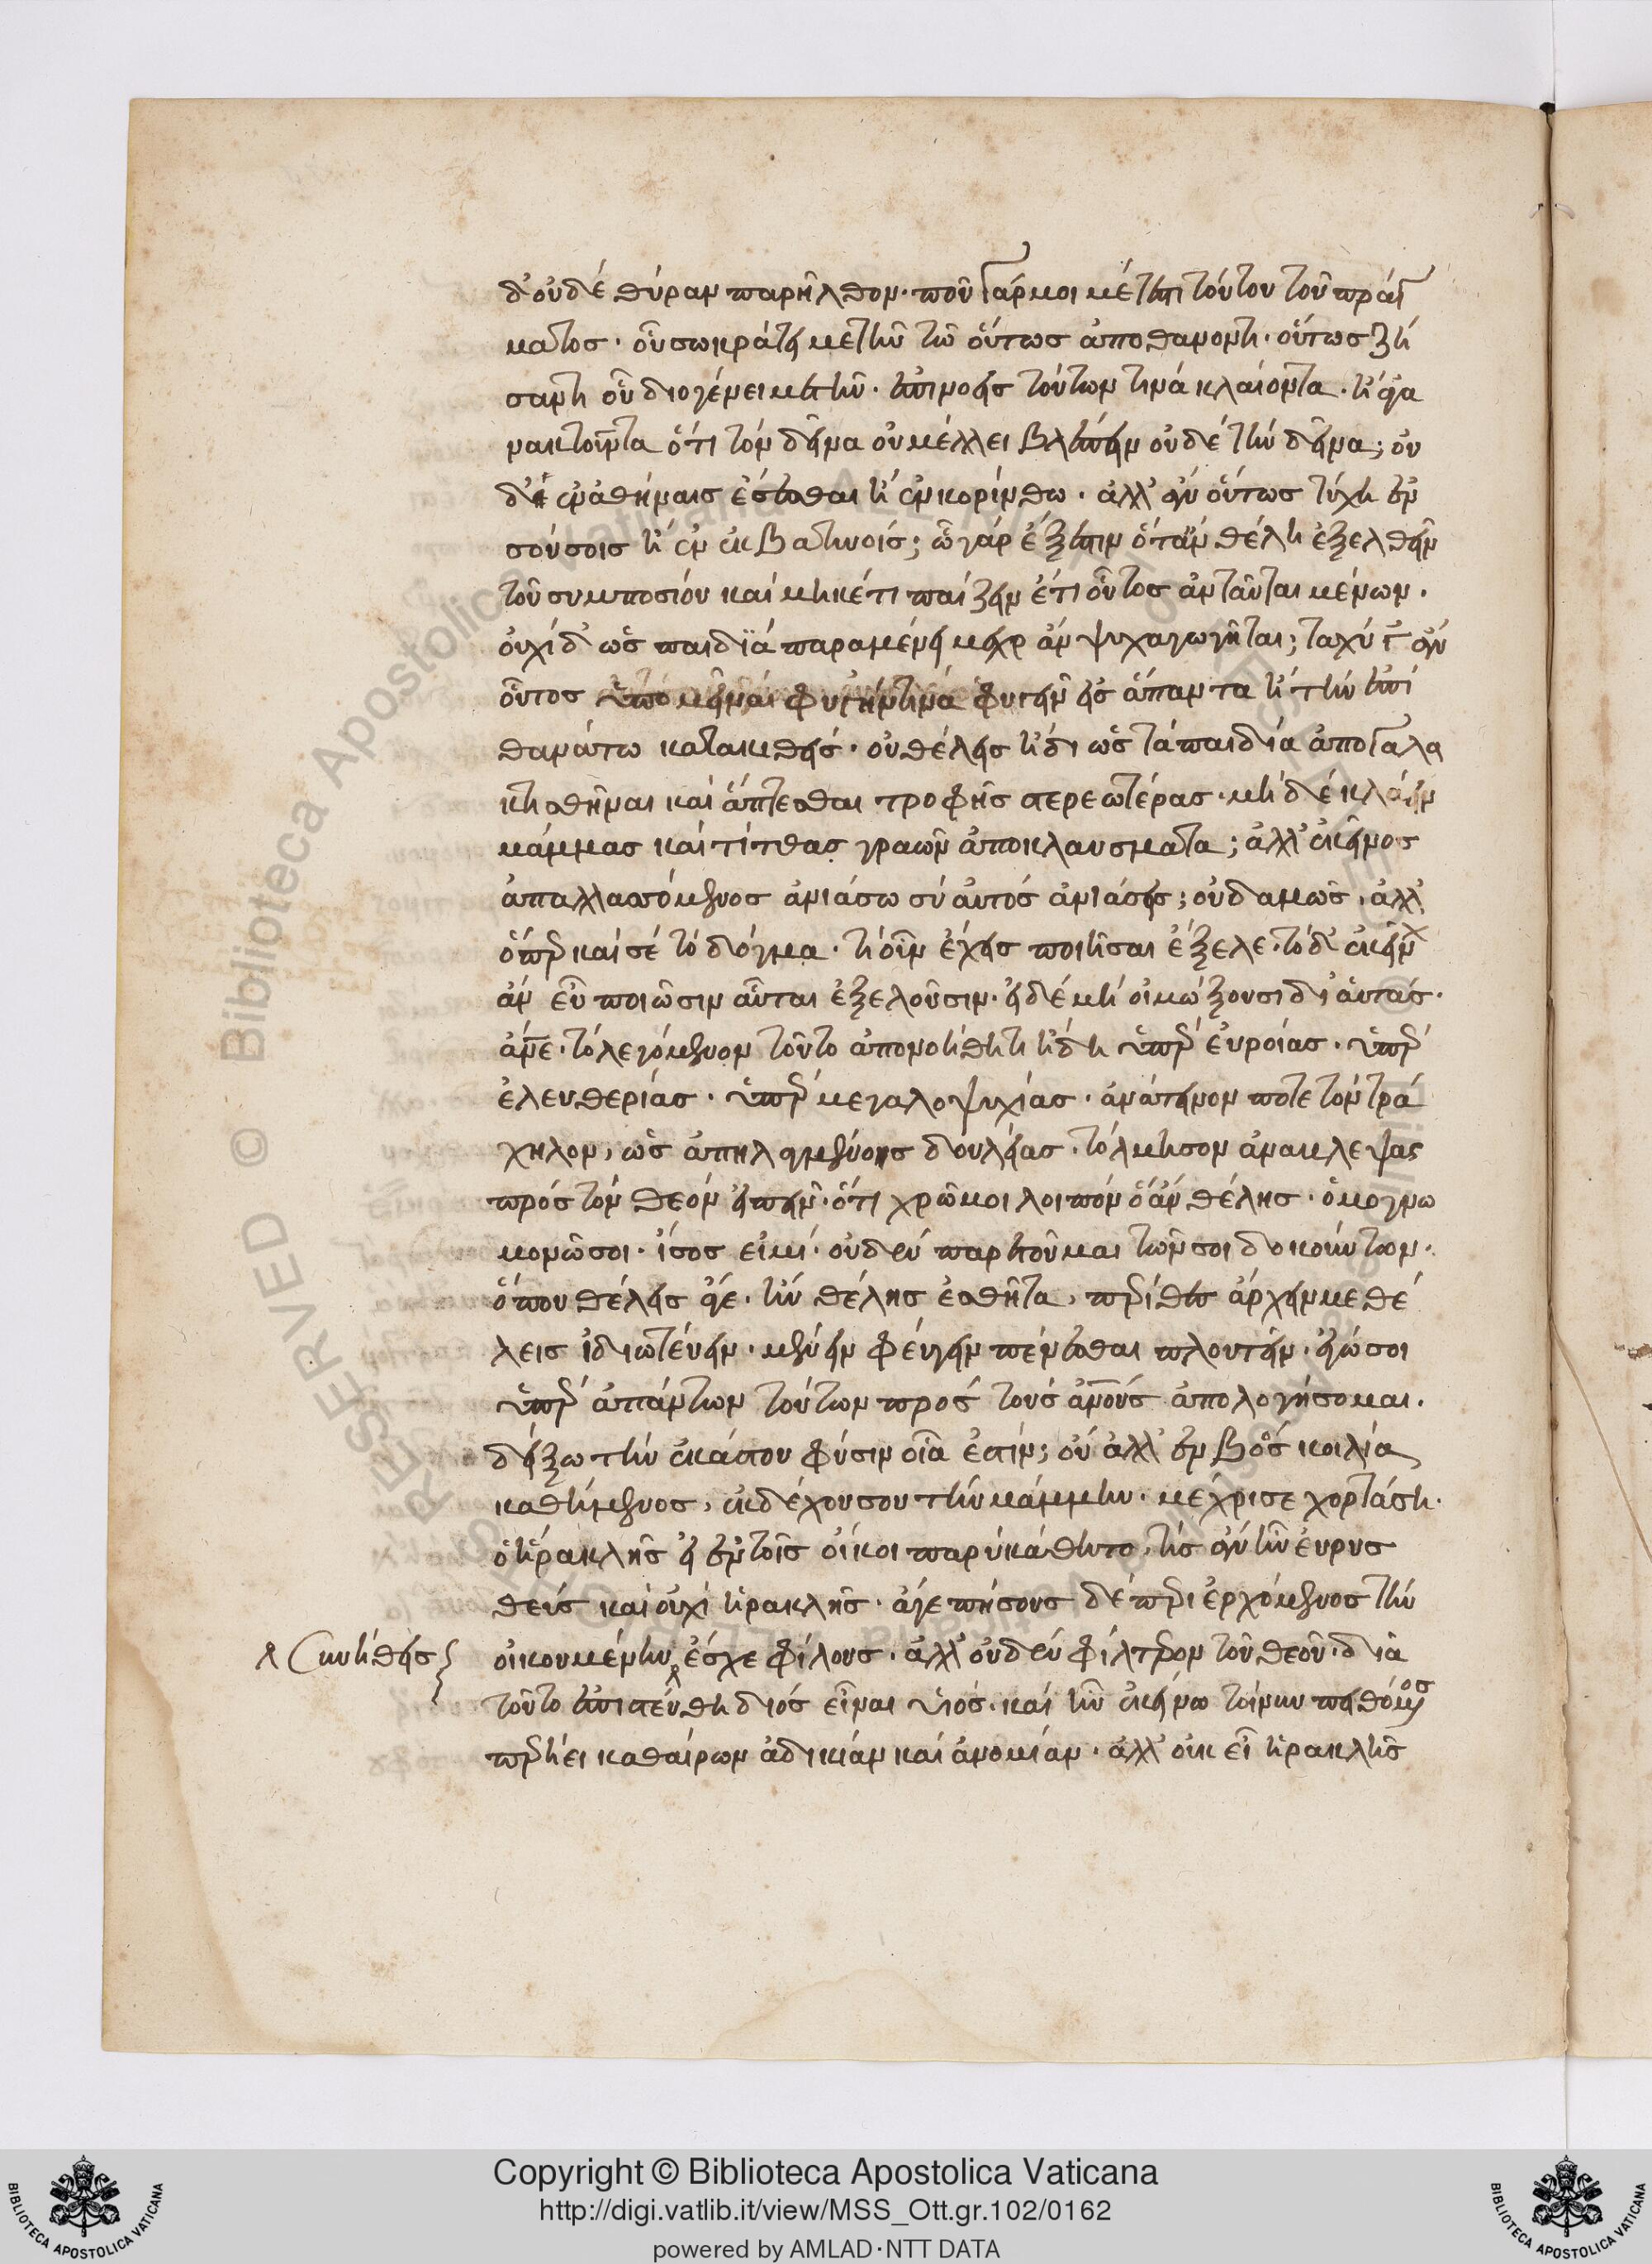 δ' οὐδὲ θύραν παρῆλθον. ποῦ γάρ μοι μέτεστι τούτου τοῦ πράγ
ματος. οὐ σωκράτη μετῆν τῶ οὕτως ἀποθανόντι. οὕτως ζή
σαντι οὐ διογένει μετῆν. ἐπινοεῖς τούτων τινὰ κλαίοντα. ἢ ἀγα
νακτοῦντα ὅτι τὸν δεῖνα οὐ μέλλει βλέπειν οὐδὲ τὴν δεῖνα; οὐ
δ' ἐν ἀθήναις ἔσεσθαι ἢ ἐν κορίνθω. ἀλλ' ἂν οὕτως τύχη ἐν
σούσοις ἢ ἐν ἐκβατινοίς; ὧ γὰρ ἔξεστιν ὅταν θέλη ἐξελθεῖν
τοῦ συμποσίου καὶ μηκέτι παίζειν ἔτι οὗτος ἀνιᾶται μένων.
οὐχὶ δ' ὡς παιδϊά παραμένει μέχρις ἂν ψυχαγωγῆται; ταχύ γ' ἂν
οὗτος ὑπομεῖναι φυγήν τινα φυγεῖν εἰς ἅπαντα ἢ τὴν ἐπὶ
θανάτω κατακριθείς. οὐ θέλεις ἤδη ὡς τὰ παιδία ἀπογαλα
κτισθῆναι καὶ ἅπτεσθαι τροφῆς στερεωτέρας. μὴ δὲ κλάειν
μάμμας καὶ τίτθας γραῶν ἀποκλαύσματα; ἀλλ' ἐκεῖνος
ἀπαλλασσόμενος ἀνιάσω σὺ αὐτὸς ἀνιάσεις; οὐδαμῶς. ἀλλ'
ὅπερ καὶ σὲ τὸ δόγμα. τί οὖν ἔχεις ποιῆσαι ἔξελε. τὸ δ' ἐκείνων
ἂν εὖ ποιῶσιν αὗται ἐξελοῦσιν. εἰ δὲ μὴ οἰμώξουσι δι' αὑτάς.
ἄνε. τὸ λεγόμενον τοῦτο ἀπονοήθητι ἤδη ὑπὲρ εὐροίας. ὑπὲρ
ἐλευθερίας. ὑπὲρ μεγαλοψυχίας. ἀνάτεινόν ποτε τὸν τρά
χηλον, ὡς ἀπηλλαγμένος δουλείας. τόλμησον ἀναβλέψας
πρὸς τὸν θεὸν εἰπεῖν. ὅτι χρῶ μοι λοιπὸν ὃ ἂν θέλης. ὁμογνω
μονῶ σοι. ἴσος εἰμί. οὐδὲν παραιτοῦμαι τῶν σοι δοκούντων.
ὅπου θέλεις ἄγε. ἣν θέλης ἐσθῆτα, περίθες ἄρχειν με θέ
λεις ἰδιωτεύειν. μένειν φεύγειν πένεσθαι πλουτεῖν. ἐγώ σοι
ὑπὲρ ἁπάντων τούτων πρὸς τοὺς ἀνους ἀπολογήσομαι.
δείξω τὴν ἑκάστου φύσιν οἵα ἐστίν; οὔ ἀλλ' ἐν βοὸς κοιλία
καθήμενος, ἐκδέχου σου τὴν μάμμην. μέχρι σε χορτάση.
ὁ ἡρακλῆς εἰ ἐν τοῖς οἴκοι παρεκάθητο, τίς ἂν ἦν εὐρυς
θεὺς καὶ οὐχὶ ἡρακλῆς. ἄγε πόσους δὲ περιερχόμενος τὴν
οἰκουμένην ἔσχε φίλους. ἀλλ' οὐδὲν φίλτερον τοῦ θεοῦ. διὰ
συνήθεις
τοῦτο ἐπιστεύθη διὸς εἶναι υἱός. καὶ ἦν ἐκείνω τοίνυν πειθόμενος
περιήει καθαίρων ἀδικίαν καὶ ἀνομίαν. ἀλλ' οὐκ εἶ ἡρακλῆς
Copyright © Biblioteca Apostolica Vaticana
http://digi.vatlib.it/view/MSS_Ott.gr.102/0162
powered by AMLAD·NTT DATA